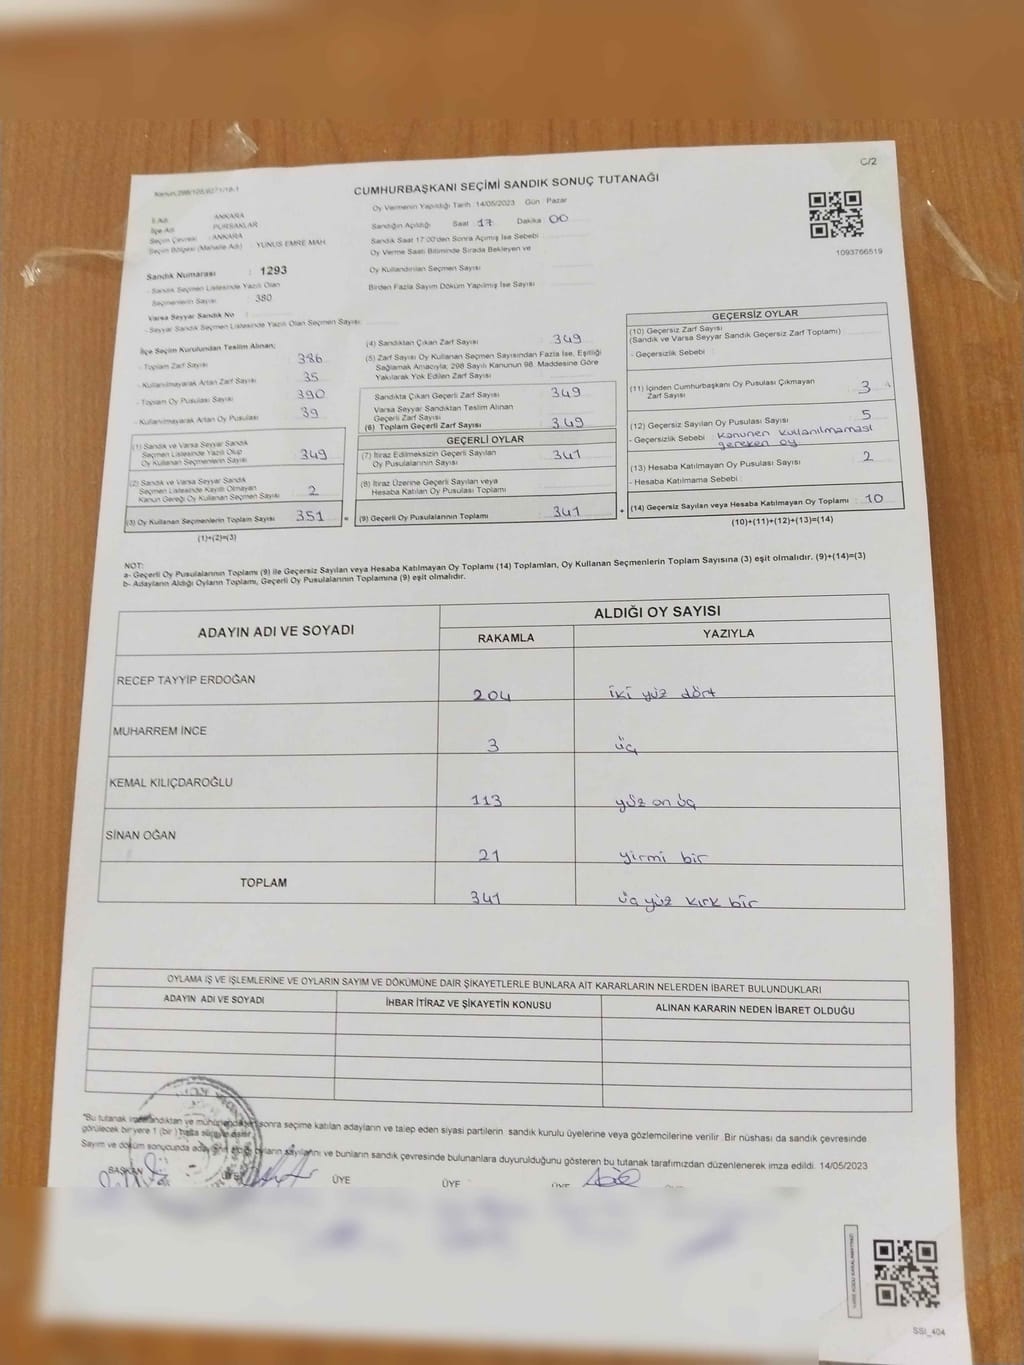 C/2
Kanun:298/105,6271/18-1
CUMHURBAŞKANI SEÇİMİ SANDIK SONUÇ TUTANAĞI
İl Adı : ANKARA
İlçe Adı : PURSAKLAR
Seçim Çevresi : ANKARA
Seçim Bölgesi (Mahalle Adı) : YUNUS EMRE MAH.
Sandık Numarası : 1293
- Sandık Seçmen Listesinde Yazılı Olan
Seçmenlerin Sayısı : 380
Varsa Seyyar Sandık No :
- Seyyar Sandık Seçmen Listesinde Yazılı Olan Seçmen Sayısı:
Oy Vermenin Yapıldığı Tarih :14/05/2023 Gün : Pazar
Sandığın Açıldığı : Saat : 17 Dakika : 00
Sandık Saat 17:00'den Sonra Açımış İse Sebebi :
Oy Verme Saati Bitiminde Sırada Bekleyen ve
Oy Kullandırılan Seçmen Sayısı :
Birden Fazla Sayım Döküm Yapılmış İse Sayısı :
1093766519
İlçe Seçim Kurulundan Teslim Alınan;
- Toplam Zarf Sayısı : 386
- Kullanılmayarak Artan Zarf Sayısı : 35
- Toplam Oy Pusulası Sayısı : 390
- Kullanılmayarak Artan Oy Pusulası : 39
(1) Sandık ve Varsa Seyyar Sandık
Seçmen Listesinde Yazılı Olup
Oy Kullanan Seçmenlerin Sayısı : 349
(2) Sandık ve Varsa Seyyar Sandık
Seçmen Listesinde Kayıtlı Olmayan
Kanun Gereği Oy Kullanan Seçmen Sayısı : 2
(3) Oy Kullanan Seçmenlerin Toplam Sayısı : 351 =
(1)+(2)=(3)
(4) Sandıktan Çıkan Zarf Sayısı : 349
(5) Zarf Sayısı Oy Kullanan Seçmen Sayısından Fazla İse, Eşitliği
Sağlamak Amacıyla, 298 Sayılı Kanunun 98. Maddesine Göre
Yakılarak Yok Edilen Zarf Sayısı :
Sandıkta Çıkan Geçerli Zarf Sayısı : 349
Varsa Seyyar Sandıktan Teslim Alınan
Geçerli Zarf Sayısı :
(6) Toplam Geçerli Zarf Sayısı : 349
GEÇERLİ OYLAR
(7) İtiraz Edilmeksizin Geçerli Sayılan
Oy Pusulalarının Sayısı : 341
(8) İtiraz Üzerine Geçerli Sayılan veya
Hesaba Katılan Oy Pusulası Toplamı :
(9) Geçerli Oy Pusulalarının Toplamı : 341 +
GEÇERSİZ OYLAR
(10) Geçersiz Zarf Sayısı :
(Sandık ve Varsa Seyyar Sandık Geçersiz Zarf Toplamı)
- Geçersizlik Sebebi :
(11) İçinden Cumhurbaşkanı Oy Pusulası Çıkmayan
Zarf Sayısı : 3
(12) Geçersiz Sayılan Oy Pusulası Sayısı : 5
- Geçersizlik Sebebi : Kanunen kullanılmaması
gereken oy
(13) Hesaba Katılmayan Oy Pusulası Sayısı : 2
- Hesaba Katılmama Sebebi :
(14) Geçersiz Sayılan veya Hesaba Katılmayan Oy Toplamı : 10
(10)+(11)+(12)+(13)=(14)
NOT:
a- Geçerli Oy Pusulalarının Toplamı (9) ile Geçersiz Sayılan veya Hesaba Katılmayan Oy Toplamı (14) Toplamları, Oy Kullanan Seçmenlerin Toplam Sayısına (3) eşit olmalıdır. (9)+(14)=(3)
b- Adayların Aldığı Oyların Toplamı, Geçerli Oy Pusulalarının Toplamına (9) eşit olmalıdır.
ADAYIN ADI VE SOYADI ALDIĞI OY SAYISI
RAKAMLA YAZIYLA
RECEP TAYYİP ERDOĞAN 204 iki yüz dört
MUHARREM İNCE 3 üç
KEMAL KILIÇDAROĞLU 113 yüz on üç
SİNAN OĞAN 21 yirmi bir
TOPLAM 341 üç yüz kırk bir
OYLAMA İŞ VE İŞLEMLERİNE VE OYLARIN SAYIM VE DÖKÜMÜNE DAİR ŞİKAYETLERLE BUNLARA AİT KARARLARIN NELERDEN İBARET BULUNDUKLARI
ADAYIN ADI VE SOYADI İHBAR İTİRAZ VE ŞİKAYETİN KONUSU ALINAN KARARIN NEDEN İBARET OLDUĞU
*Bu tutanak imzalandıktan ve mühürlendikten sonra seçime katılan adayların ve talep eden siyasi partilerin sandık kurulu üyelerine veya gözlemcilerine verilir. Bir nüshası da sandık çevresinde
görülecek bir yere 1 (bir) hafta süreyle asılır.
Sayım ve döküm sonucunda adayların aldığı oyların sayılarını ve bunların sandık çevresinde bulunanlara duyurulduğunu gösteren bu tutanak tarafımızdan düzenlenerek imza edildi. 14/05/2023
BAŞKAN ÜYE ÜYE ÜYE ÜYE ÜYE
SSI_404